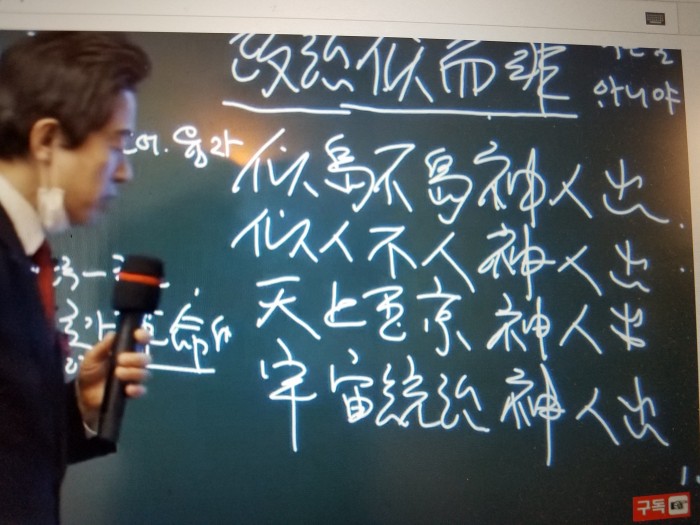 政治似而非
아니야
似鳥不鳥神人出
似人不人神人出
天上玉京神人出
宇宙統治神人出
革命
구독